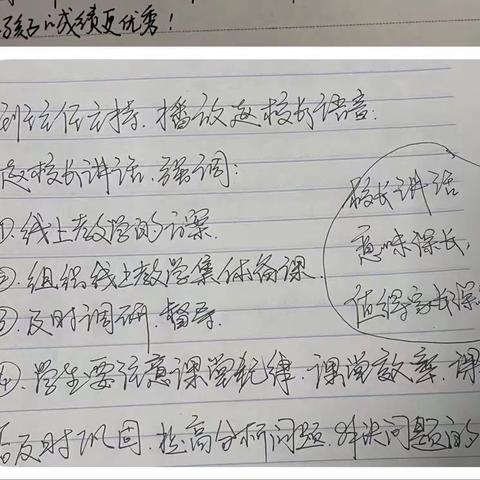 孩子的成绩更优秀！
主持.播放赵校长语音:
赵校长讲话.强调:
①.线上教学的方案.
②.组织线上教学集体备课.
③.及时调研.督导.
④.学生要注意课堂纪律.课堂效率.课
后及时巩固.提高分析问题.解决问题的
校长讲话
意味深长,
值得家长深